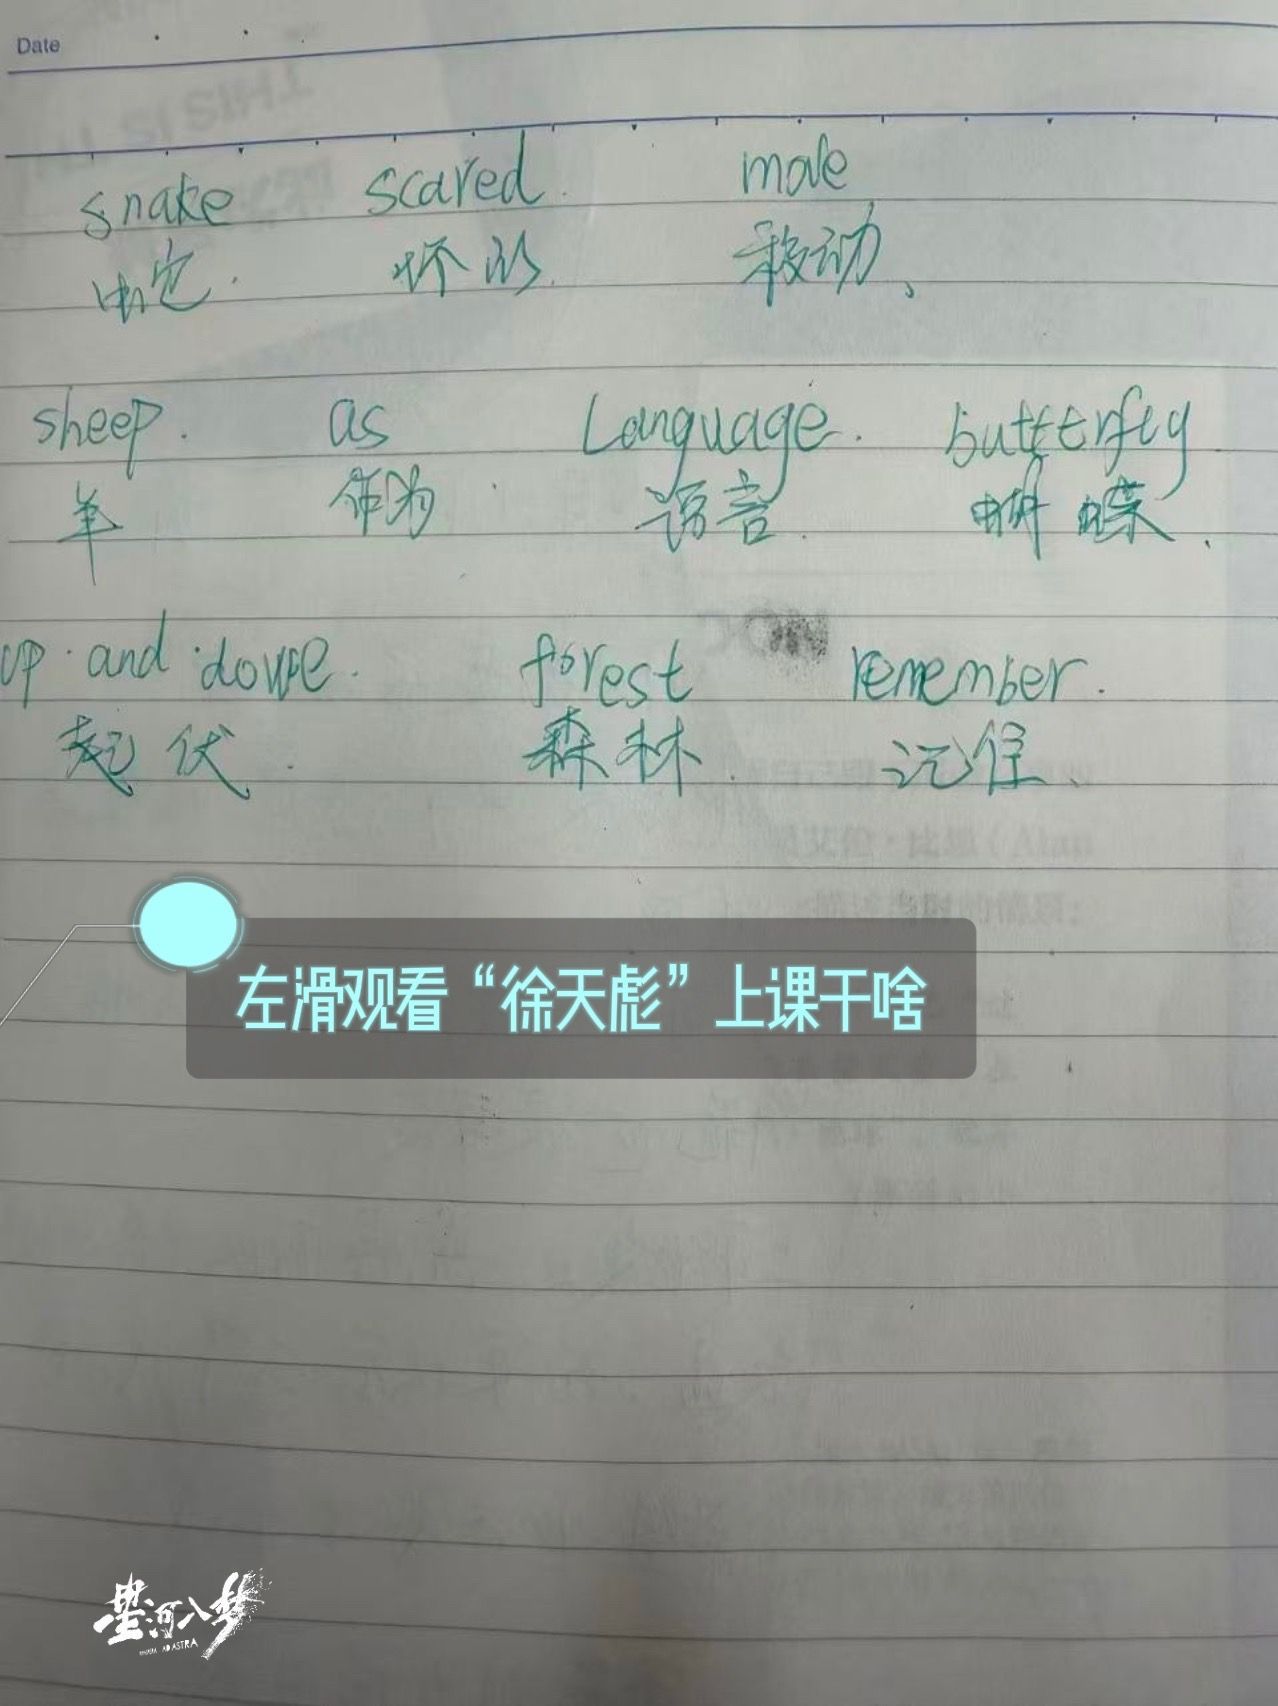 Date
snake scared. move
蛇. 怀的. 移动、
sheep. as Language. butterfly
羊 作为. 语言. 蝴蝶.
up and dowe.  forest remember.
起伏. 森林. 记住、
左滑观看“徐天彪”上课干啥
星河入梦
AD ASTRA